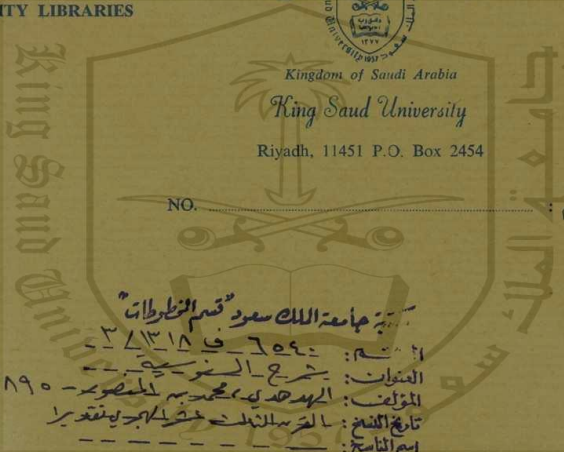 ITY LIBRARIES
1957
Kingdom of Saudi Arabia
King Saud University
Riyadh, 11451 P.O. Box 2454
NO. :
King Saud University
جامعة الملك سعود
1957
مكتبة جامعة الملك سعود "قسم المخطوطات"
الرقم: ٦٥٤٠ ف ١٣١٨ / ٣
العنوان: شرح السنوسية
المؤلف: الهدهدي، محمد بن المنصور - ٨٩٥
تاريخ النسخ: القرن الثالث عشر الهجري تقديرا
اسم الناسخ: